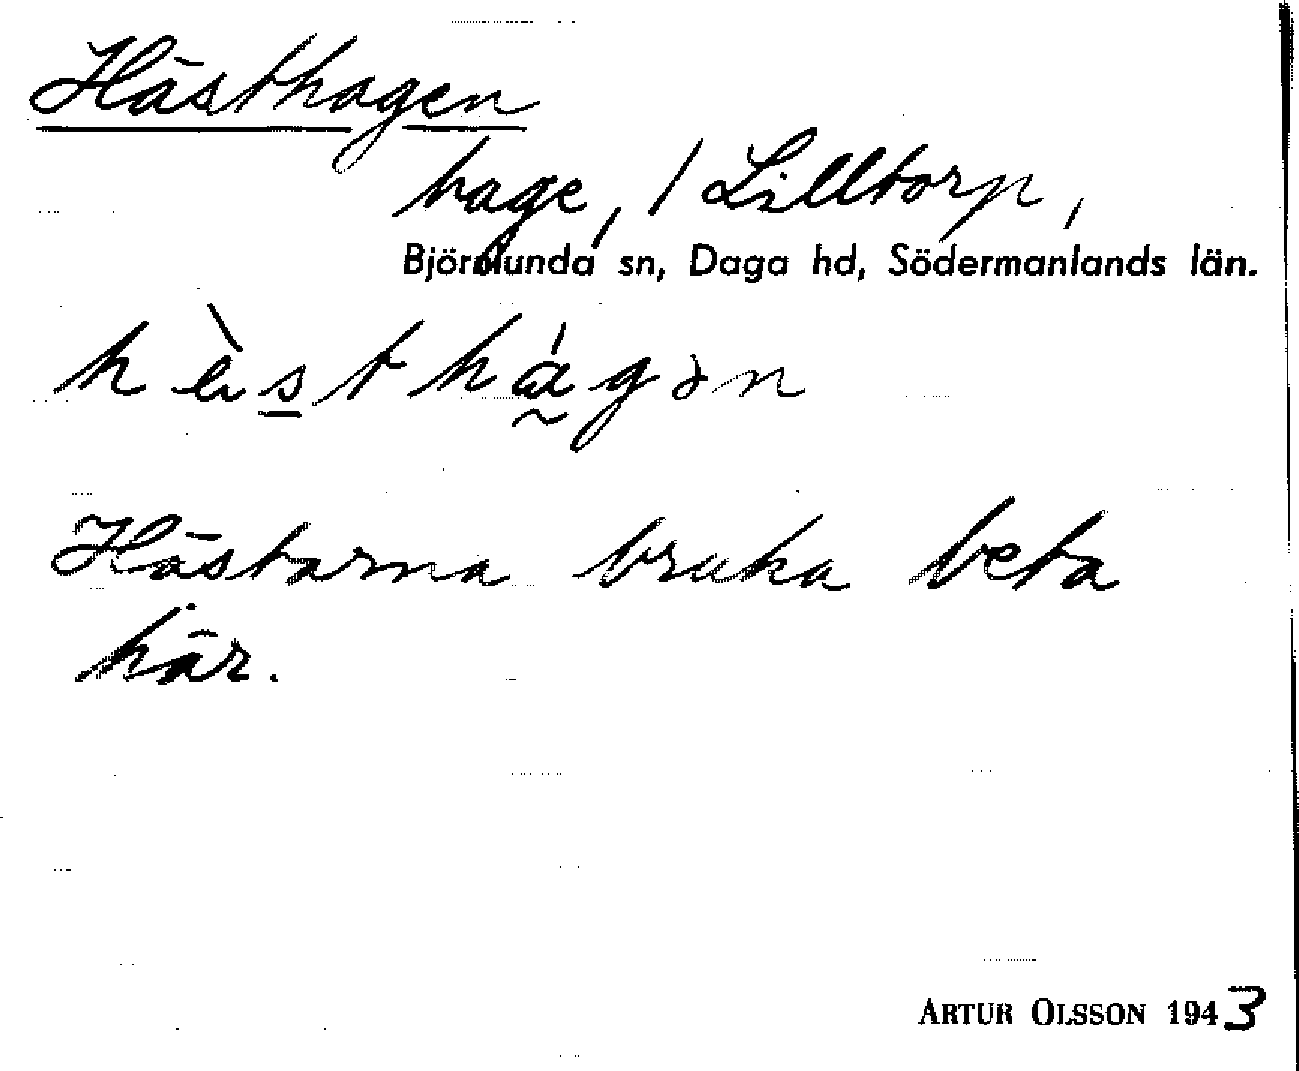 Hästhagen
hage, / Lilltorp,
Björnlunda sn, Daga hd, Södermanlands län.
hèsthágən
Hästarna bruka beta
här.
ARTUR OLSSON 1943